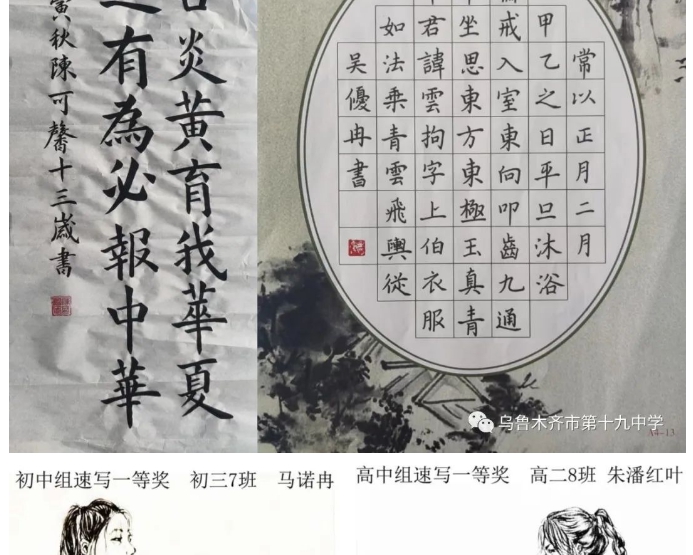 炎黄育我華夏
有為必報中華
寅秋陳可馨十三歲書
常以正月二月
甲乙之日平旦沐浴
戒入室東向叩齒九通
坐思東方東極玉真青
君諱雲拘字上伯衣服
如法乘青雲飛輿從
吳優冉書
乌鲁木齐市第十九中学
A4-13
初中组速写一等奖 初三7班 马诺冉
高中组速写一等奖 高二8班 朱潘红叶